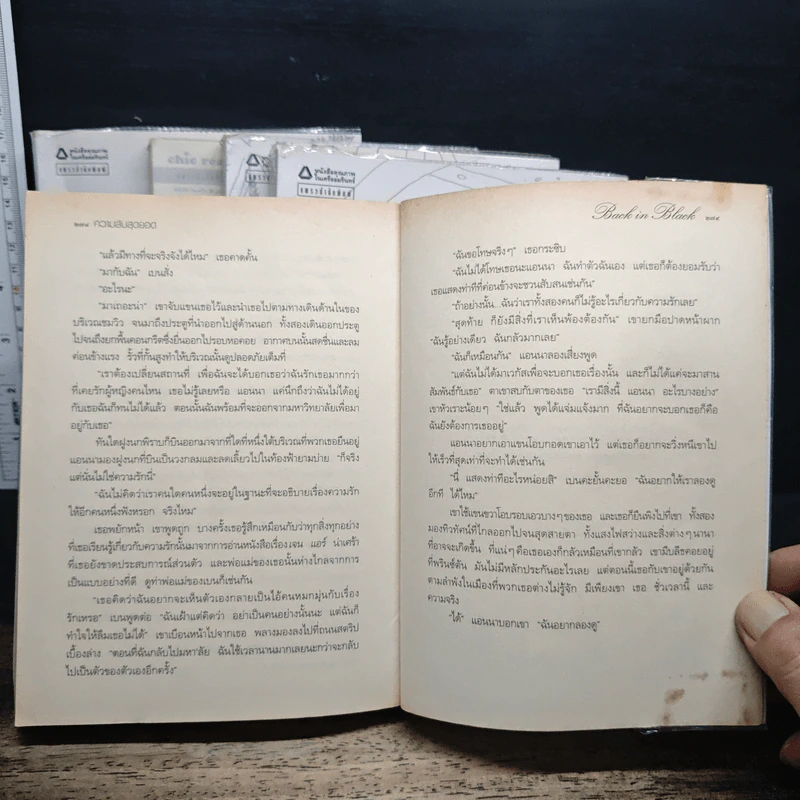 หนังสือคุณภาพ
ในเครืออมรินทร์
แพรวสำนักพิมพ์
chic rea
หนังสือคุณภาพ
ในเครืออมรินทร์
แพรวสำนักพิมพ์
๒๗๔ ความลับสุดยอด
"แล้วมีทางที่จะจริงจังได้ไหม" เธอคาดคั้น
"มากับฉัน" เบนสั่ง
"อะไรนะ"
"มาเถอะน่า" เขาจับแขนเธอไว้และนำเธอไปตามทางเดินด้านในของ
บริเวณชมวิว จนมาถึงประตูที่นำออกไปสู่ด้านนอก ทั้งสองเดินออกประตู
ไปจนถึงยกพื้นคอนกรีตซึ่งยื่นออกไปรอบหอคอย อากาศบนนั้นสดชื่นและลม
ค่อนข้างแรง รั้วที่กั้นสูงทำให้บริเวณนั้นดูปลอดภัยเต็มที่
"เราต้องเปลี่ยนสถานที่ เพื่อฉันจะได้บอกเธอว่าฉันรักเธอมากกว่า
ที่เคยรักผู้หญิงคนไหน เธอไม่รู้เลยหรือ แอนนา แค่นึกถึงว่าฉันไม่ได้อยู่
กับเธอฉันก็ทนไม่ได้แล้ว ตอนนั้นฉันพร้อมที่จะออกจากมหาวิทยาลัยเพื่อมา
อยู่กับเธอ"
ทันใดฝูงนกพิราบก็บินออกมาจากที่ใดที่หนึ่งใต้บริเวณที่พวกเธอยืนอยู่
แอนนามองฝูงนกที่บินเป็นวงกลมและลดเลี้ยวไปในท้องฟ้ายามบ่าย "ก็จริง
แต่นั่นไม่ใช่ความรักนี่"
"ฉันไม่คิดว่าเราคนใดคนหนึ่งจะอยู่ในฐานะที่จะอธิบายเรื่องความรัก
ให้อีกคนหนึ่งฟังหรอก จริงไหม"
เธอพยักหน้า เขาพูดถูก บางครั้งเธอรู้สึกเหมือนกับว่าทุกสิ่งทุกอย่าง
ที่เธอเรียนรู้เกี่ยวกับความรักนั้นมาจากการอ่านหนังสือเรื่องเจน แอร์ น่าเศร้า
ที่เธอยังขาดประสบการณ์ส่วนตัว และพ่อแม่ของเธอนั้นห่างไกลจากการ
เป็นแบบอย่างที่ดี ดูท่าพ่อแม่ของเบนก็เช่นกัน
"เธอคิดว่าฉันอยากจะเห็นตัวเองกลายเป็นไอ้คนหมกมุ่นกับเรื่อง
รักเหรอ" เบนพูดต่อ "ฉันเฝ้าแต่คิดว่า อย่าเป็นคนอย่างนั้นนะ แต่ฉันก็
ทำใจให้ลืมเธอไม่ได้" เขาเบือนหน้าไปจากเธอ พลางมองลงไปที่ถนนสตริป
เบื้องล่าง "ตอนที่ฉันกลับไปมหา'ลัย ฉันใช้เวลานานมากเลยนะกว่าจะกลับ
ไปเป็นตัวของตัวเองอีกครั้ง"
Back in Black ๒๗๕
"ฉันขอโทษจริงๆ" เธอกระซิบ
"ฉันไม่ได้โทษเธอนะแอนนา ฉันทำตัวฉันเอง แต่เธอก็ต้องยอมรับว่า
เธอแสดงท่าทีที่ค่อนข้างจะชวนสับสนเช่นกัน"
"ถ้าอย่างนั้น...ฉันว่าเราทั้งสองคนก็ไม่รู้อะไรเกี่ยวกับความรักเลย"
"สุดท้าย ก็ยังมีสิ่งที่เราเห็นพ้องต้องกัน" เขายกมือปาดหน้าผาก
"ฉันรู้อย่างเดียว ฉันกลัวมากเลย"
"ฉันก็เหมือนกัน" แอนนาลองเสี่ยงพูด
"แต่ฉันไม่ได้มาเวกัสเพื่อจะบอกเธอเรื่องนั้น และก็ไม่ได้แค่จะมาสาน
สัมพันธ์กับเธอ" ตาเขาสบกับตาของเธอ "เรามีสิ่งนี้ แอนนา อะไรบางอย่าง"
เขาหัวเราะน้อยๆ "ใช่แล้ว พูดได้แจ่มแจ้งมาก ที่ฉันอยากจะบอกเธอก็คือ
ฉันยังต้องการเธออยู่"
แอนนาอยากเอาแขนโอบกอดเขาเอาไว้ แต่เธอก็อยากจะวิ่งหนีเขาไป
ให้เร็วที่สุดเท่าที่จะทำได้เช่นกัน
"นี่ แสดงท่าทีอะไรหน่อยสิ" เบนคะยั้นคะยอ "ฉันอยากให้เราลองดู
อีกที ได้ไหม"
เขาใช้แขนขวาโอบรอบเอวบางๆ ของเธอ และเธอก็ยืนพิงไปที่เขา ทั้งสอง
มองทิวทัศน์ที่ไกลออกไปจนสุดสายตา ทั้งแสงไฟสว่างและสิ่งต่างๆ นานา
ที่อาจจะเกิดขึ้น ที่แน่ๆ คือเธอเองก็กลัวเหมือนที่เขากลัว เขามีบลีธคอยอยู่
ที่พรินซ์ตัน มันไม่มีหลักประกันอะไรเลย แต่ตอนนี้เธอกับเขาอยู่ด้วยกัน
ตามลำพังในเมืองที่พวกเธอต่างไม่รู้จัก มีเพียงเขา เธอ ชั่วเวลานี้ และ
ความจริง
"ได้" แอนนาบอกเขา "ฉันอยากลองดู"